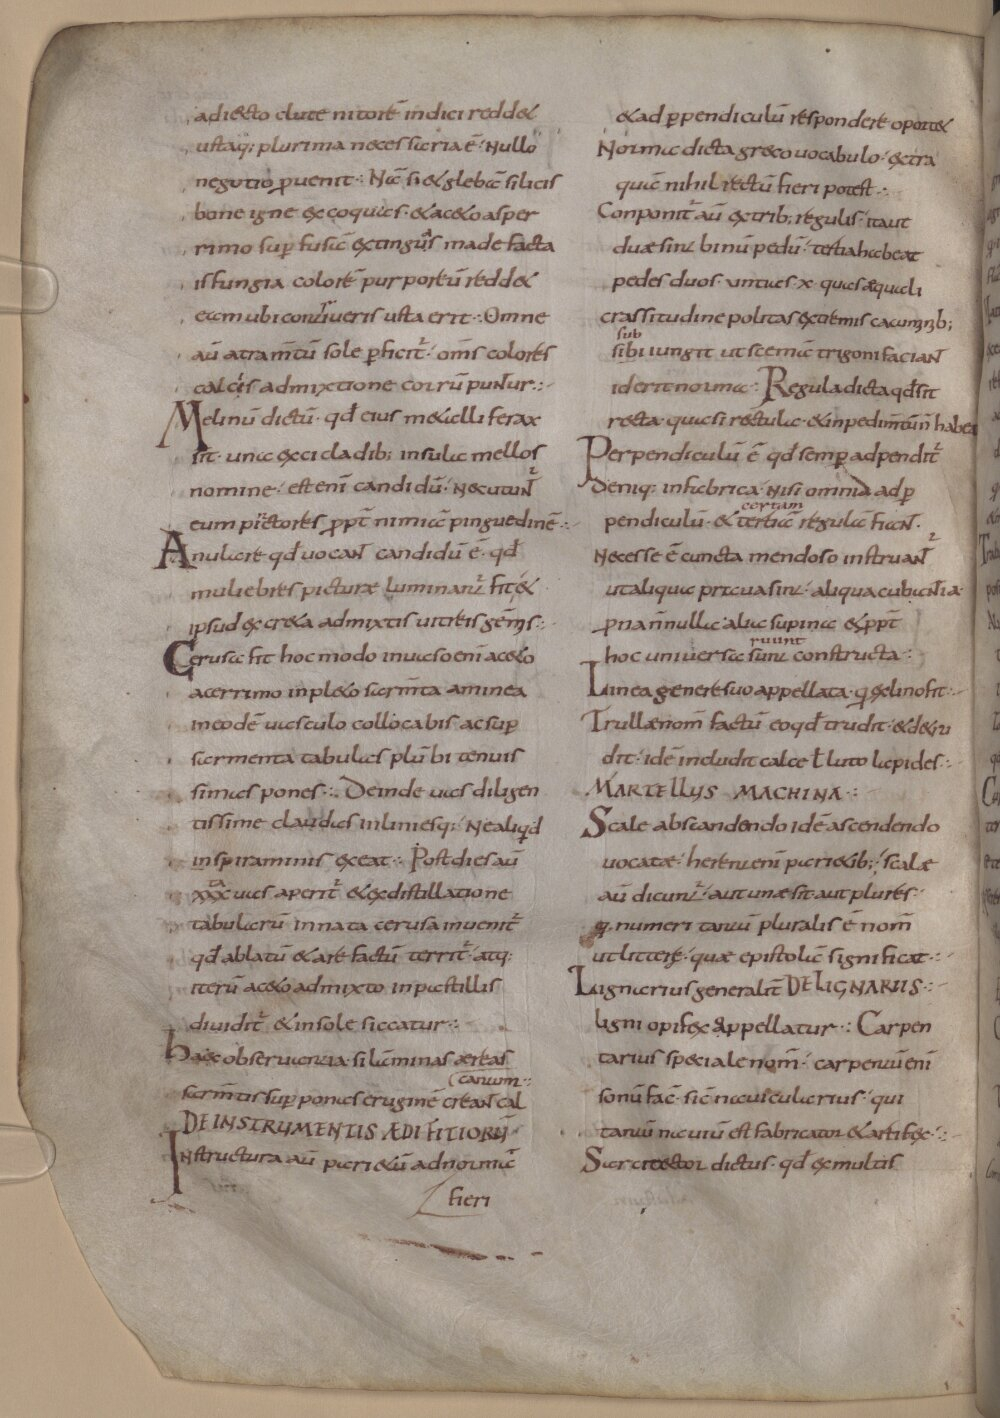 adiecto elute nitorē indici reddet
ustaq; plurima necessaria ē. Nullo
negotio ꝓvenit. Nā si et glebā silicis
bone igne excoquas. et aceto asper
rimo sup̄fusā extinguas madefacta
is fungia colorē purporeū reddet
eam ubi contriveris usta erit. Omne
aū atram̄tū sole ꝑficit᷑. om̄s colores
calcis admixtione corrūpunt᷑.
Melinū dictū. qđ eius metalli ferax
sit. una ex cicladib; insula mellos
nomine. est enī candidū. Nec utunt᷑
eum pictores ꝓpt̄ nimiā pinguedinē.
Anulare qđ vocant candidū ē. qđ
muliebres picturae luminant᷑. fit et
ipsud ex creta admixtis vitreis gēmis.
Cerusa fit hoc modo in vaso enī aceto
acerrimo inpleto sarm̄ta aminea
in eodē vasculo collocabis ac sup̄
sarmenta tabulas plūbi tenuis
simas pones. Deinde vas diligen
tissime claudas inliniesq; Ne aliqđ
inspiraminis exeat. Post dies aū
xxx vas aperit᷑ et ex distillatione
tabularū innata cerusa invenit᷑
qđ ablatū et are factū territ᷑. atq;
iterū aceto admixto in pastillis
dividit᷑ et in sole siccatur.
hac observantia si laminas aereas
canum
sarm̄tis sup̄ponas erugınē creant cal
DE INSTRUMENTIS ÆDIFITIORŪ
Instructura aū parietū ad normā
fieri
et ad ꝑpendiculū respondere oportet
Norma dicta greco vocabulo. extra
quā nihil rectū fieri potest.
Conponit᷑ aū ex trib; regulis. ita ut
duae sint binū pedū. tertia habeat
pedes duos. untias x. quas aequali
crassitudine politas extremis cacuminib;
sub
sibi iungit ut scemā trigoni faciant
id erit norma. Regula dicta qđ sit
recta. quasi rectula. et inpedim̄tūn̄ habeat
Perpendiculū ē qđ semꝑ adpendit᷑
Deniq; in fabrica nisi omnia ad ꝑ
certam
pendiculū. et tertiā regulā fiant.
Necesse ē cuncta mendoso instruant᷑
ut aliqua prava sint. aliqua cubantia
prīa n̄nulla. alia supina et ꝓpt̄
ruunt
hoc universa sunt constructa.
Linea genere suo appellata. q̄ ex lino fit.
Trullae nom̄ factū eo qđ trudit. et detru
dit. idē includit calce ł luto lapides.
MARTELLUS MACHINA.
Scale ab scandendo idē ascendendo
vocatae. herent enī parietib; scalae
aū dicunt᷑. aut una sit aut plures.
q̄ numeri tantū pluralis ē nom̄
ut litterę. quae epistolā significat.
Lignarius generalit̄ DE LIGNARIIS.
ligni opifex appellatur. Carpen
tarius speciale nom̄. carpentū enī
sonū fac̄. sic̄ nauicularius. qui
tantū nauiū est fabricator et artifex.
Sarcitector dictus. qđ ex multis